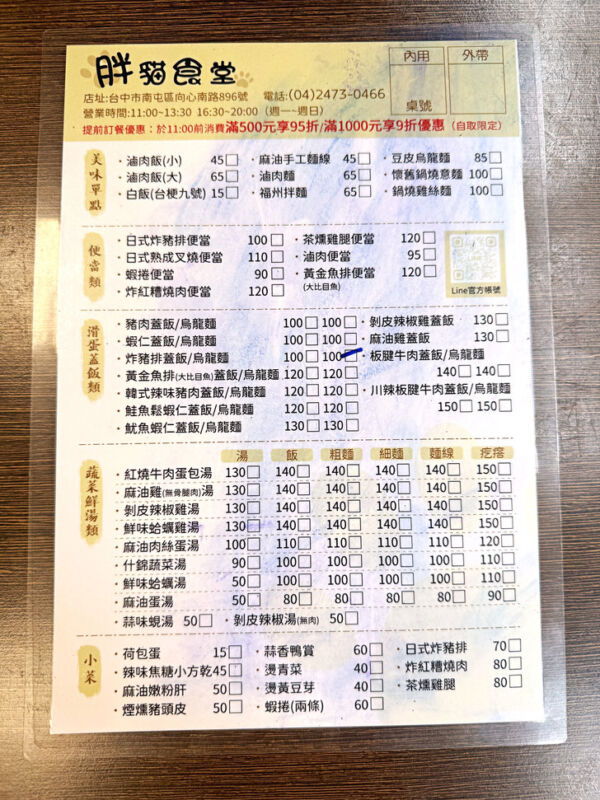 胖貓食堂
內用 外帶
桌號
店址:台中市南屯區向心南路896號 電話:(04)2473-0466
營業時間:11:00~13:30 16:30~20:00 (週一~週日)
提前訂餐優惠:於11:00前消費滿500元享95折/滿1000元享9折優惠 (自取限定)
美味單點
·滷肉飯(小) 45□ ·麻油手工麵線 45□ ·豆皮烏龍麵 85□
·滷肉飯(大) 65□ ·滷肉麵 65□ ·懷舊鍋燒意麵 100□
·白飯(台梗九號) 15□ ·福州拌麵 65□ ·鍋燒雞絲麵 100□
便當類
·日式炸豬排便當 100□ ·茶燻雞腿便當 120□
·日式熟成叉燒便當 110□ ·滷肉便當 95□
·蝦捲便當 90□ ·黃金魚排便當 120□
(大比目魚)
·炸紅糟燒肉便當 120□
Line官方帳號
滑蛋蓋飯類
·豬肉蓋飯/烏龍麵 100□ 100□ ·剝皮辣椒雞蓋飯 130□
·蝦仁蓋飯/烏龍麵 100□ 100□ ·麻油雞蓋飯 130□
·炸豬排蓋飯/烏龍麵 100□ 100□ ·板腱牛肉蓋飯/烏龍麵
·黃金魚排(大比目魚)蓋飯/烏龍麵 120□ 120□ 140□ 140□
·韓式辣味豬肉蓋飯/烏龍麵 120□ 120□ ·川辣板腱牛肉蓋飯/烏龍麵
·鮭魚鬆蝦仁蓋飯/烏龍麵 120□ 120□ 150□ 150□
·魷魚蝦仁蓋飯/烏龍麵 130□ 130□
蔬菜鮮湯類
湯 飯 粗麵 細麵 麵線 疙瘩
·紅燒牛肉蛋包湯 130□ 140□ 140□ 140□ 140□ 150□
·麻油雞(無骨腿肉)湯 130□ 140□ 140□ 140□ 140□ 150□
·剝皮辣椒雞湯 130□ 140□ 140□ 140□ 140□ 150□
·鮮味蛤蠣雞湯 130□ 140□ 140□ 140□ 140□ 150□
·麻油肉絲蛋湯 100□ 110□ 110□ 110□ 110□ 120□
·什錦蔬菜湯 90□ 100□ 100□ 100□ 100□ 110□
·鮮味蛤蠣湯 50□ 100□ 100□ 100□ 100□ 110□
·麻油蛋湯 50□ 80□ 80□ 80□ 80□ 90□
·蒜味蜆湯 50□ ·剝皮辣椒湯(無肉) 50□
小菜
·荷包蛋 15□ ·蒜香鴨賞 60□ ·日式炸豬排 70□
·辣味焦糖小方乾 45□ ·燙青菜 40□ ·炸紅糟燒肉 80□
·麻油嫩粉肝 50□ ·燙黃豆芽 40□ ·茶燻雞腿 80□
·煙燻豬頭皮 50□ ·蝦捲(兩條) 60□